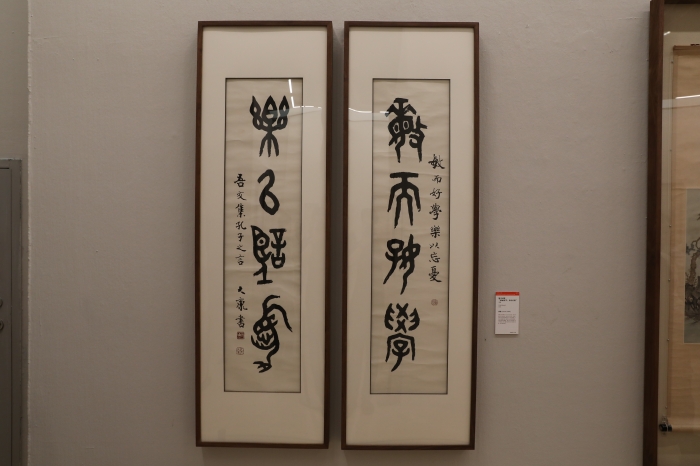 敏而好學
敏而好學樂以忘憂
樂以忘憂
吾友集孔子之言
大康書